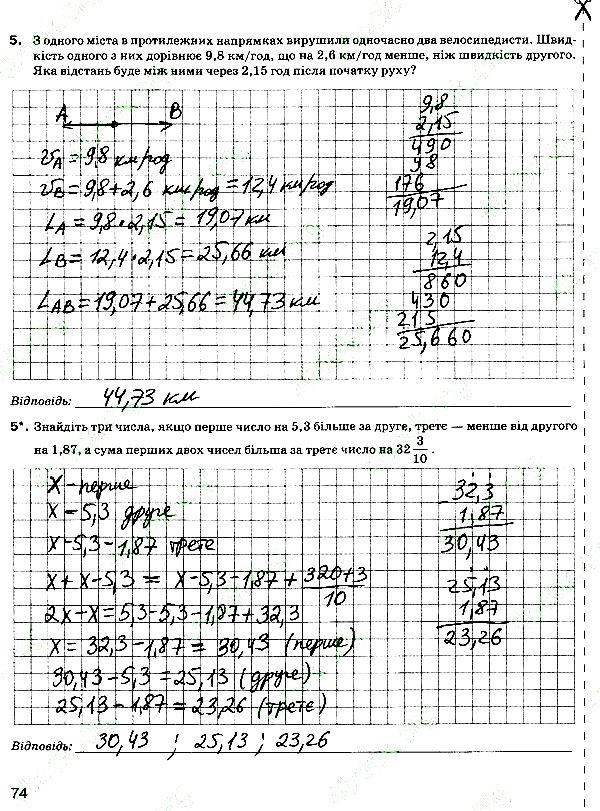 5. З одного міста в протилежних напрямках вирушили одночасно два велосипедисти. Швид-
кість одного з них дорівнює 9,8 км/год, що на 2,6 км/год менше, ніж швидкість другого.
Яка відстань буде між ними через 2,15 год після початку руху?
A B
9,8
2,15
490
98
176
19,07
υA = 9,8 км/год
υB = 9,8 + 2,6 км/год = 12,4 км/год
LA = 9,8 · 2,15 = 19,07 км
LB = 12,4 · 2,15 = 25,66 км
LAB = 19,07 + 25,66 = 44,73 км
2,15
12,4
860
430
215
25,660
Відповідь: 44,73 км
5*. Знайдіть три числа, якщо перше число на 5,3 більше за друге, третє — менше від другого
на 1,87, а сума перших двох чисел більша за третє число на 32 3/10.
X - перше
X - 5,3 друге
X - 5,3 - 1,87 третє
X + X - 5,3 = X - 5,3 - 1,87 + (320+3)/10
2X - X = 5,3 - 5,3 - 1,87 + 32,3
X = 32,3 - 1,87 = 30,43 (перше)
30,43 - 5,3 = 25,13 (друге)
25,13 - 1,87 = 23,26 (третє)
32,3
1,87
30,43
25,13
1,87
23,26
Відповідь: 30,43 ; 25,13 ; 23,26
74